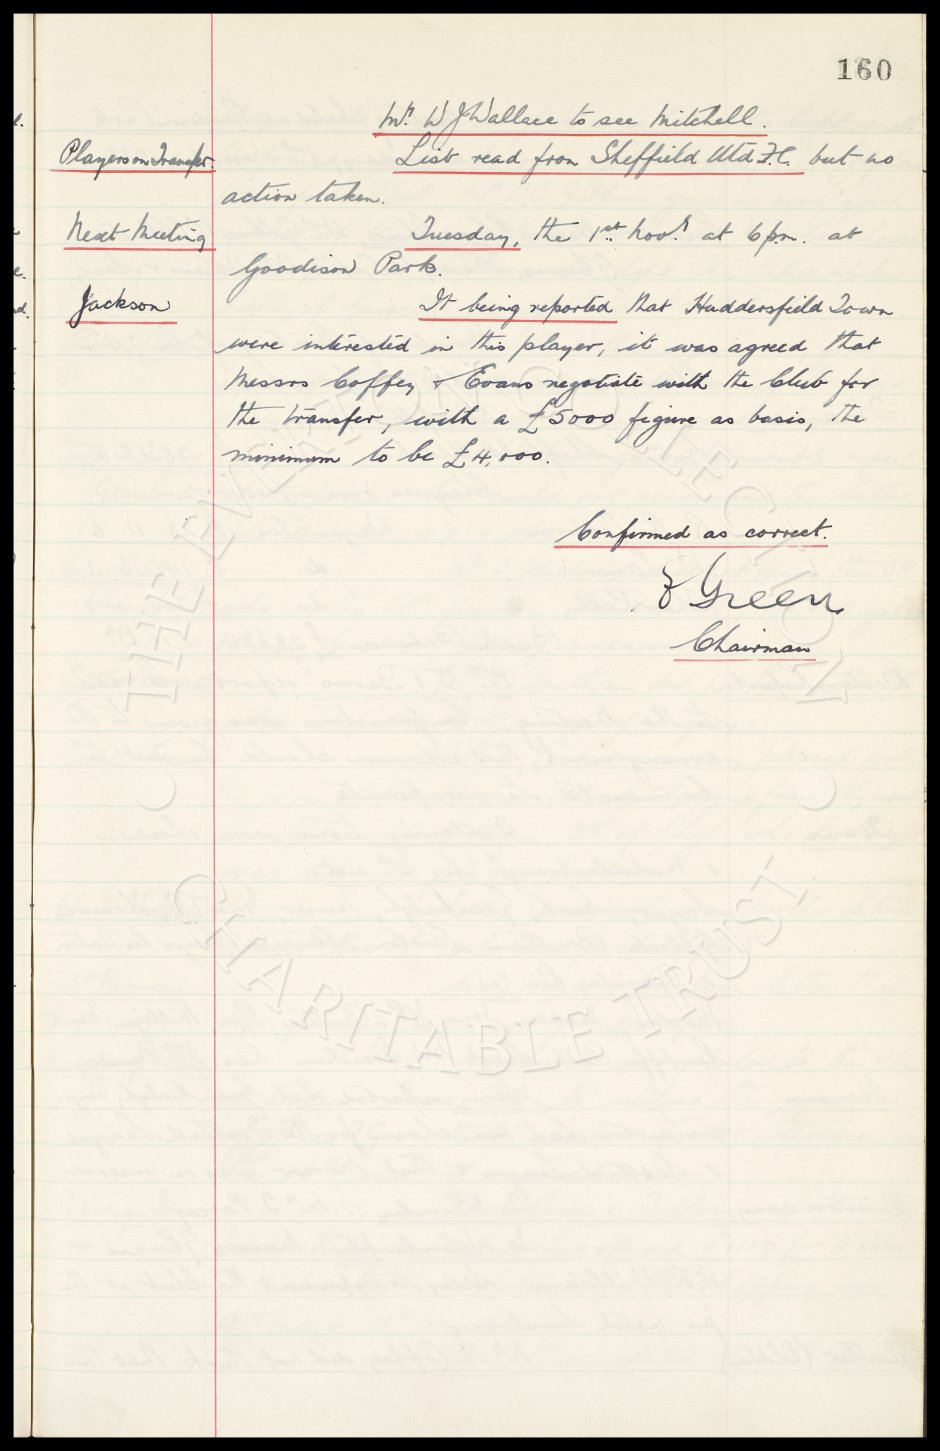 160
Mr. W J Wallace to see Mitchell.
Players on Transfer. List read from Sheffield Utd. F.C. but no
action taken.
Next Meeting Tuesday, the 1st Novr. at 6 pm. at
Goodison Park.
Jackson It being reported that Huddersfield Town
were interested in this player, it was agreed that
Messrs Coffey & Evans negotiate with the Club for
the transfer, with a £5000 figure as basis, the
minimum to be £4,000.
Confirmed as correct.
Green
Chairman
THE EVERTON COLLECTION
CHARITABLE TRUST